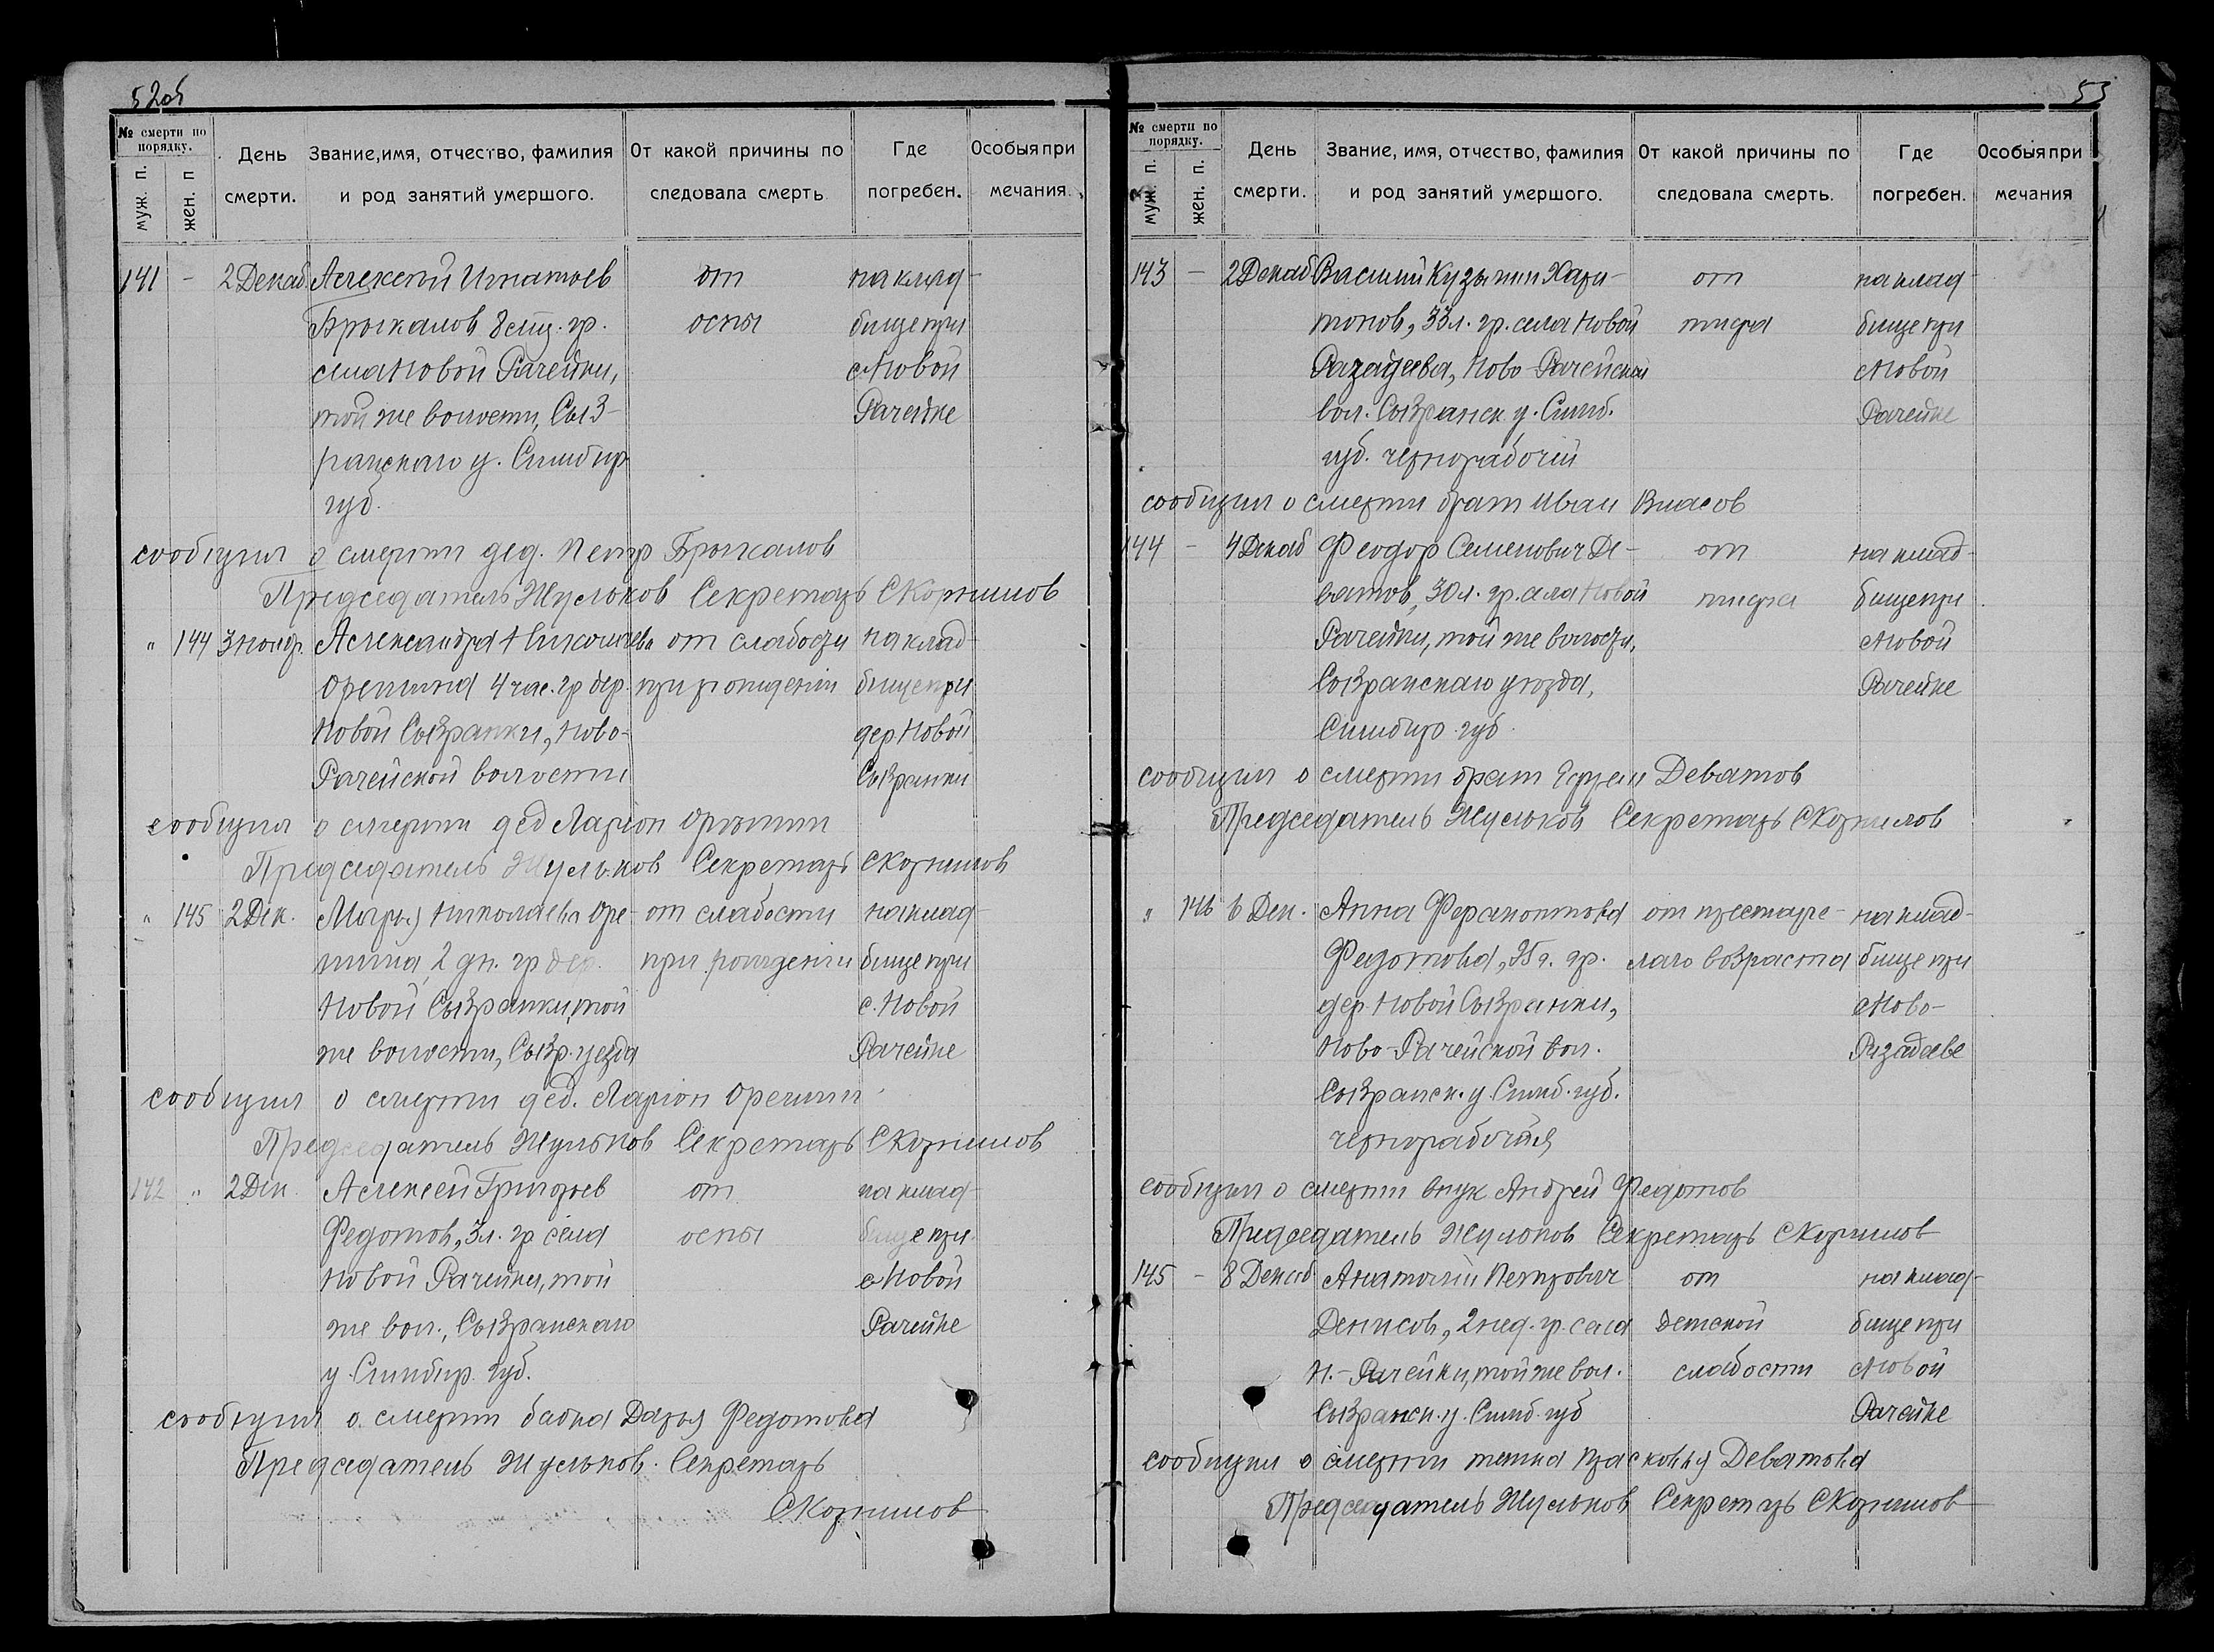 52об
№ смерти по порядку.
муж. п.
жен. п
День смерти.
Звание, имя, отчество, фамилия и род занятий умершого.
От какой причины последовала смерть
Где погребен.
Особыя примечания.
141 - 2 Декаб Алексей Игнатьев от на клад-
Брыкалов 8 гр. оспы бище при
села Новой Рачейки, с Новой
той же волости, Сыз- Рачейке
ранскаго у. Симбир
губ.
сообщил о смерти дед. Петр Брыкалов
Председатель Жульков Секретарь С Корнилов
" 144 3 Ноябр. Александра Николаева от слабости на клад-
Орешина 4 час. гр дер. при рождении бище при
Новой Сызранки, Ново- дер Новой
Рачейской волости Сызранки
сообщил о смерти дед Ларион Орешин
Председатель Жульков Секретарь С Корнилов
" 145 2 Дек. Марья Николаева Оре- от слабости на клад-
шина, 2 дн. гр дер. при рождении бище при
Новой Сызранки, той с. Новой
же волости, Сызр. уезда Рачейке
сообщил о смерти дед. Ларион Орешин
Председатель Жульков Секретарь С Корнилов
142 " 2 Дек. Алексей Григорьев от на клад-
Федотов, 3 л. гр села оспы бище при
Новой Рачейки, той с Новой
же вол., Сызранскаго Рачейке
у. Симбир. губ.
сообщил о смерти бабка Дарья Федотова
Председатель Жульков. Секретарь
С Корнилов
53
№ смерти по порядку.
муж. п.
жен. п.
День смерти.
Звание, имя, отчество, фамилия и род занятий умершого.
От какой причины последовала смерть.
Где погребен.
Особыя примечания
143 - 2 Декаб Василий Кузьмин Хари- от на клад-
тонов, 33 л. гр. села Новой тифа бище при
Рачейской с Новой
вол. Сызранск. у. Симб. Рачейке
губ. чернорабочий
сообщил о смерти брат Иван Власов
144 - 4 Декаб Феодор Семенович Де- от на клад-
ватов, 30 л. гр. села Новой тифа бище при
Рачейки, той же волости, с Новой
Сызранскаго уезда, Рачейке
Симбир. губ.
сообщил о смерти брат Ефрем Деватов
Председатель Жульков Секретарь С Корнилов
" 146 6 Дек. Анна Ферапонтова от престаре- на клад-
Федотова, гр. лаго возраста бище при
дер. Новой Сызранки, с Ново-
Ново-Рачейской вол. Ризадеве
Сызранск. у. Симб. губ.
чернорабочия
сообщил о смерти внук Андрей Федотов
Председатель Жульков Секретарь С Корнилов
145 - 8 Декаб Анатолий Петрович от на клад-
Денисов, 2 нед. гр. села детской бище при
Н.-Рачейки, той же вол. слабости с Новой
Сызранск. у. Симб. губ Рачейке
сообщил о смерти тетка Прасковья Деватова
Председатель Жульков Секретарь С Корнилов